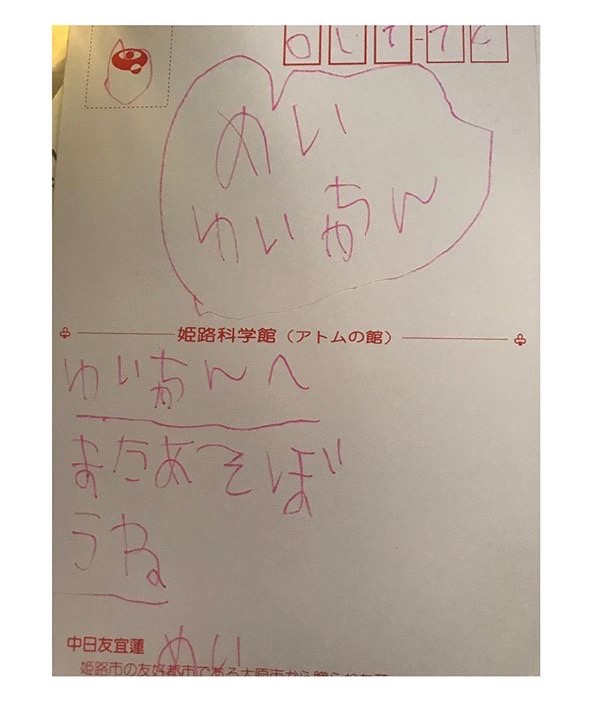 めい
ゆいちゃん
姫路科学館（アトムの館）
ゆいちゃんへ
またあそぼ
うね
めい
中日友宜蓮
姫路市の友好都市である太原市から贈られた